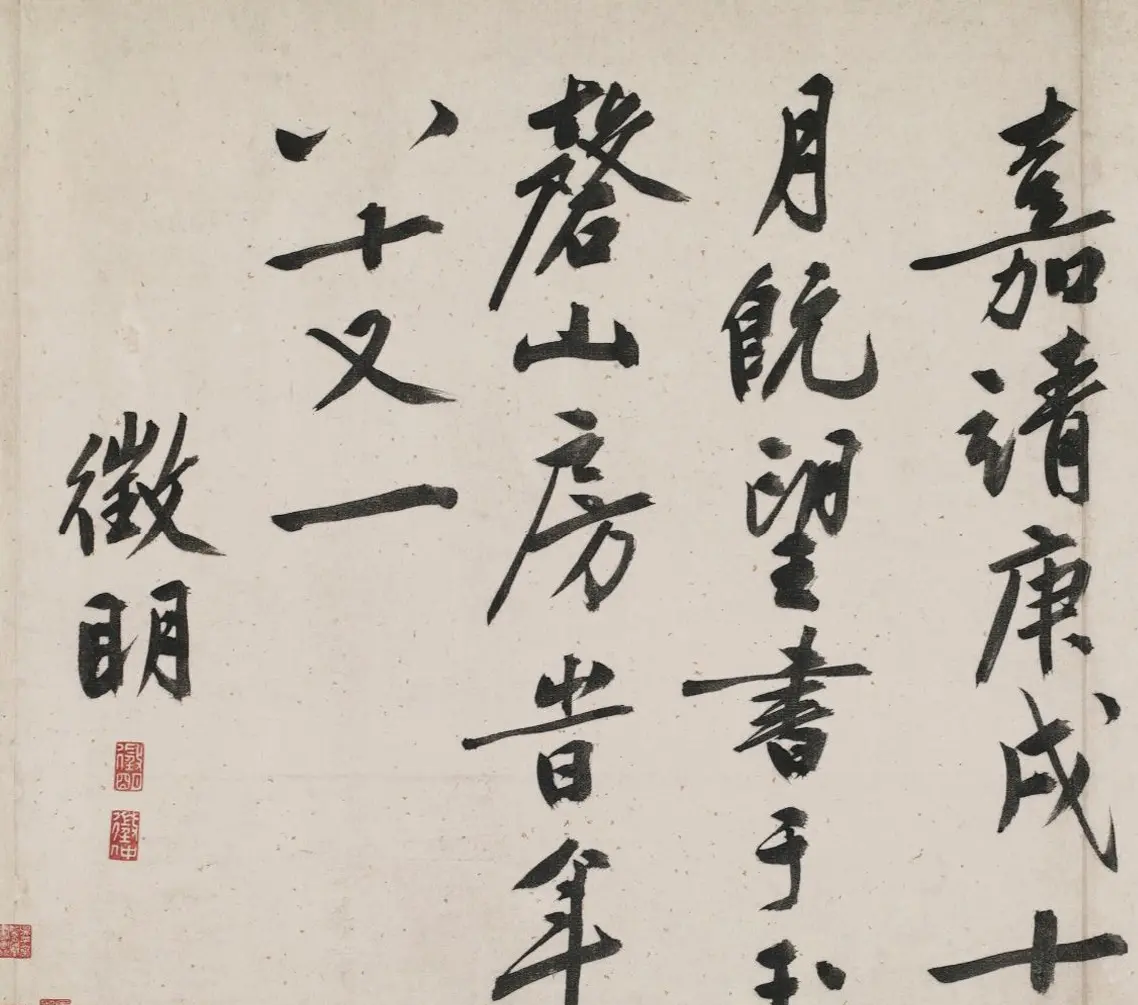 嘉靖庚戌十
月既望書于玉
磬山房昔年
八十又一
徵明
徵明
徵仲